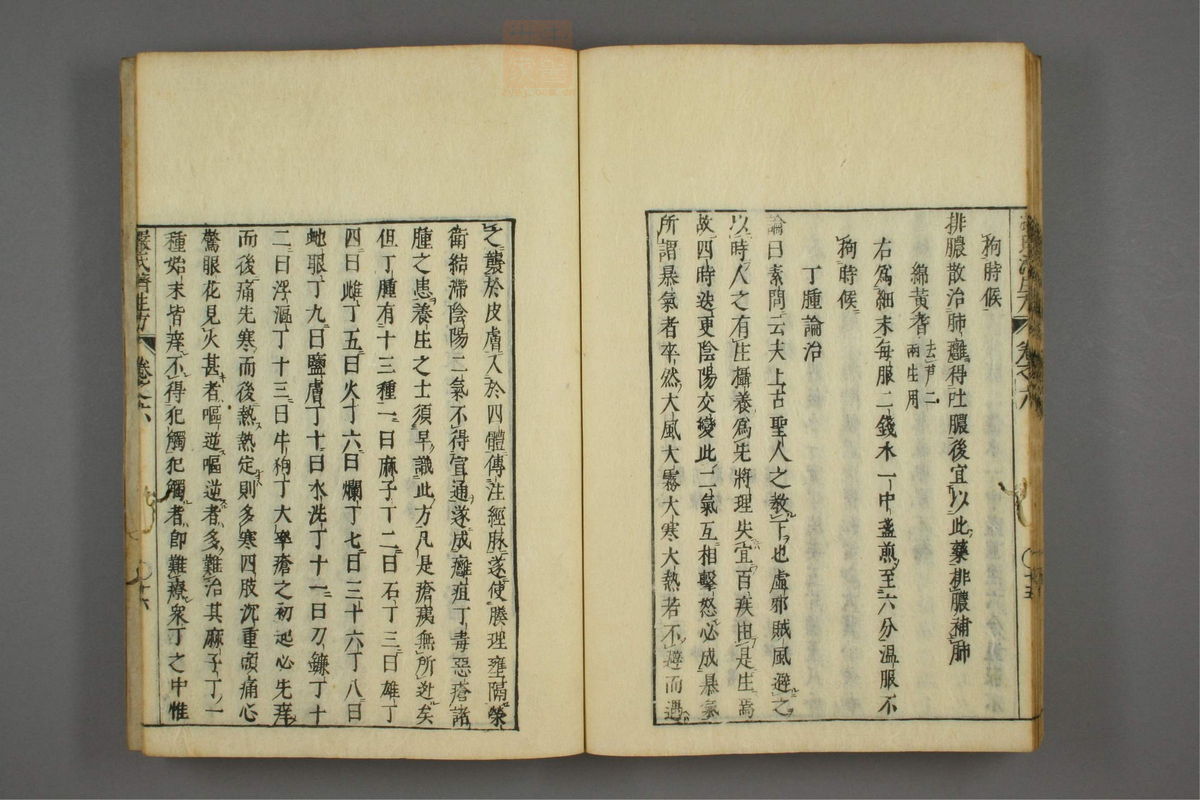 拘時候
排膿散治肺癰得吐膿後宜以此藥排膿補肺
綿黃耆去芦二兩生用
右爲細末每服二錢水一中盞煎至六分温服不
拘時候
丁腫論治
論曰素問云夫上古聖人之教下也虛邪賊風避之
以時人之有生攝養爲先將理失宜百疾由是生焉
故四時迭更陰陽交變此二氣互相擊怒必成暴氣
所謂暴氣者卒然大風大霧大寒大熱若不避而遇
之襲於皮膚入於四體傳注經脉遂使腠理壅隔榮
衛結滯陰陽二氣不得宣通遂成癰疽丁毒惡瘡諸
腫之患養生之士須早識此方凡是瘡痍無所逃矣
但丁腫有十三種一曰麻子丁二曰石丁三曰雄丁
四曰雌丁五曰火丁六曰爛丁七曰三十六丁八曰
虵眼丁九曰鹽膚丁十曰水洗丁十一曰刀鐮丁十
二曰浮漚丁十三曰牛狗丁大率瘡之初起必先痒
而後痛先寒而後熱熱定則多寒四肢沉重頭痛心
驚眼花見火甚者嘔逆嘔逆者多難治其麻子丁一
種始末皆痒不得犯觸犯觸者即難療衆丁之中惟
嚴氏濟生方 卷之六 十六